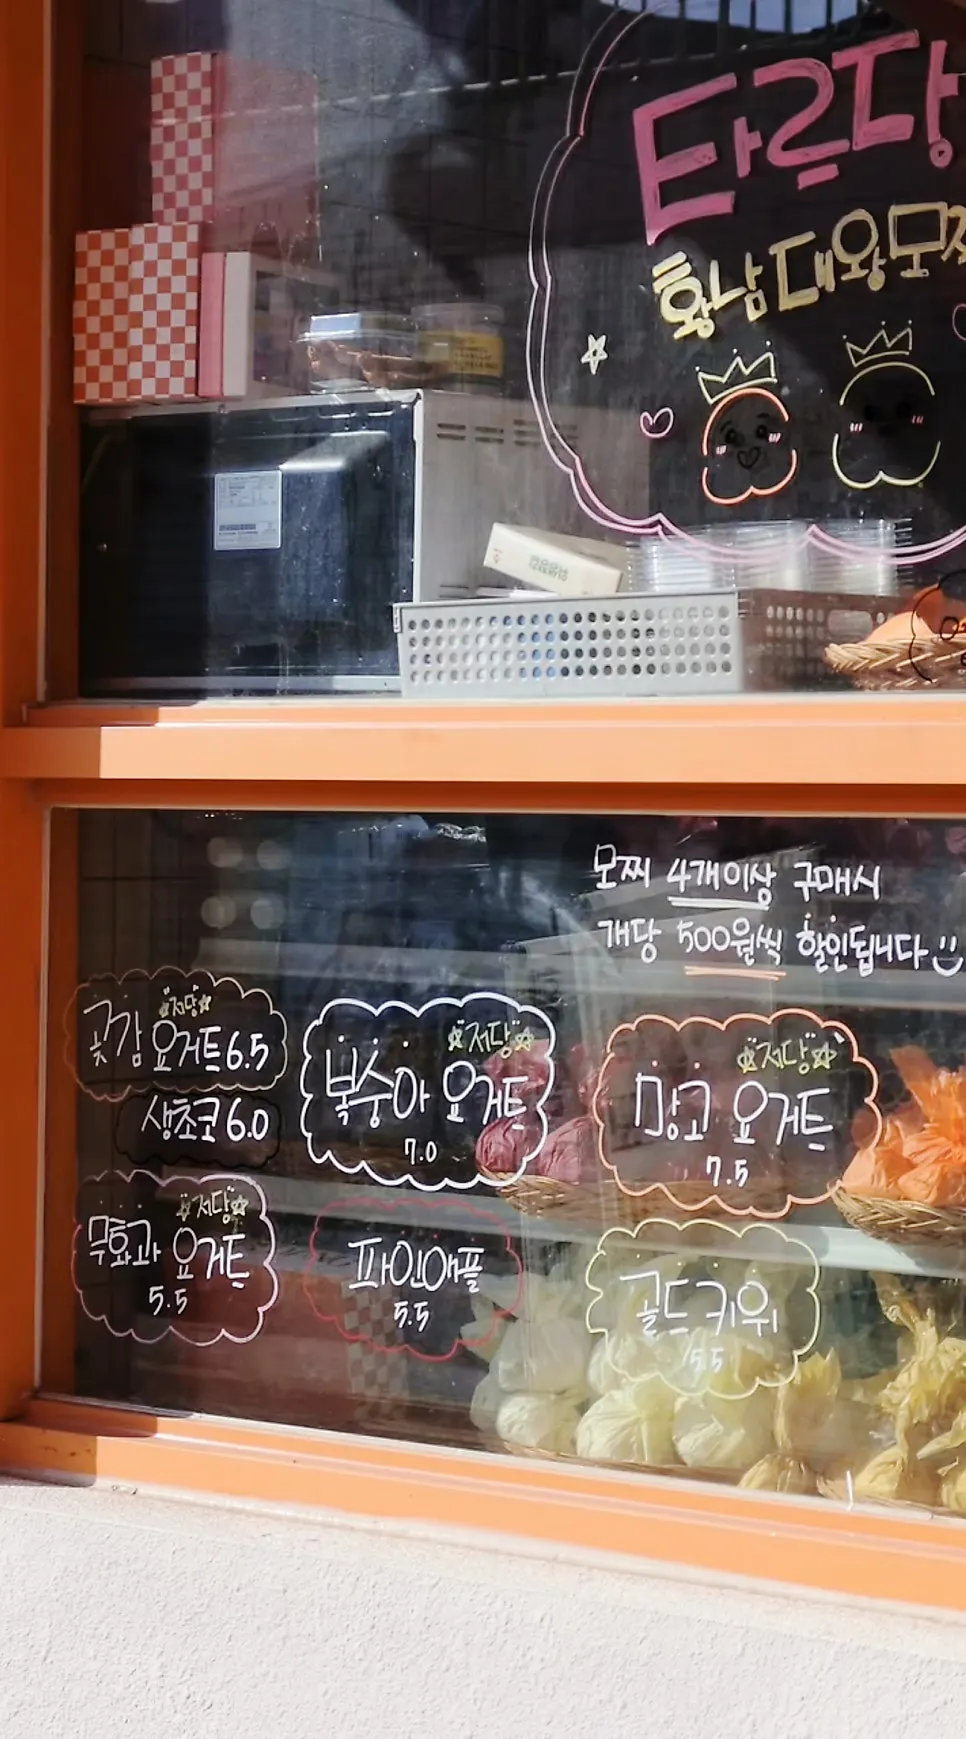 타르당
황남 대왕모찌
모찌 4개이상 구매시
개당 500원씩 할인됩니다
저당
곶감 요거트 6.5
생초코 6.0
저당
복숭아 요거트
7.0
저당
망고 요거트
7.5
저당
무화과 요거트
5.5
파인애플
5.5
골드키위
5.5